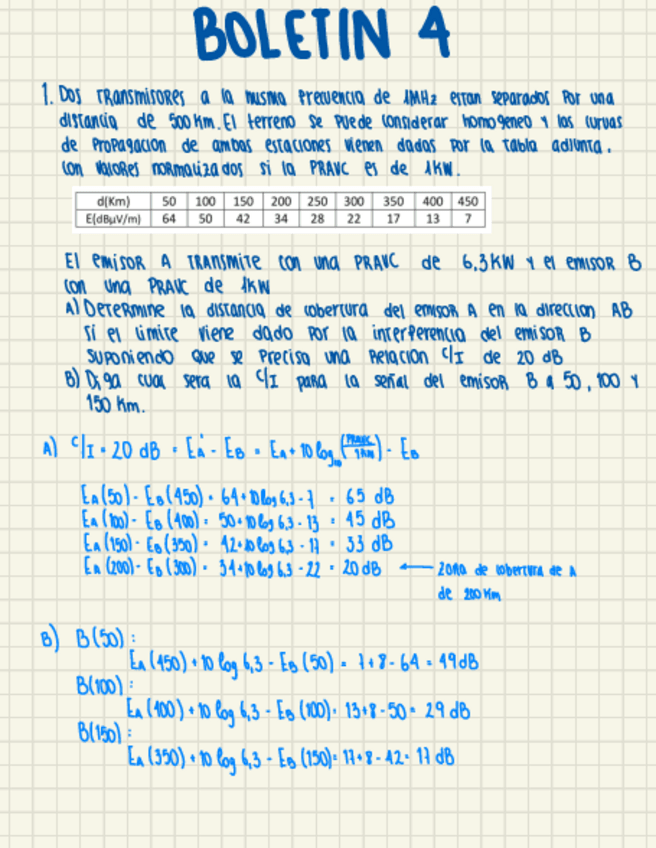 BOLETIN 4
1. DOS TRANSMISORES a la misma frecuencia de 1MHz estan separados por una
distancia de 500 Km. El terreno se puede considerar homogeneo y las curvas
de propagacion de ambas estaciones vienen dados por la tabla adjunta.
con valores normalizados si la PRAVC es de 1KW.
d(Km) 50 100 150 200 250 300 350 400 450
E(dBµV/m) 64 50 42 34 28 22 17 13 7
El emisor A transmite con una PRAVC de 6,3KW y el emisor B
con una PRAVC de 1KW
A) Determine la distancia de cobertura del emisor A en la direccion AB
si el limite viene dado por la interferencia del emisor B
suponiendo que se precisa una relacion C/I de 20 dB
B) Diga cual sera la C/I para la señal del emisor B a 50, 100 y
150 Km.
A) C/I = 20 dB = EA' - EB = EA + 10 log10 (PRAVC/1KW) - EB
EA (50) - EB (450) = 64+10log 6,3 - 7 = 65 dB
EA (100) - EB (400) = 50+10log 6,3 - 13 = 45 dB
EA (150) - EB (350) = 42+10log 6,3 - 17 = 33 dB
EA (200) - EB (300) = 34+10log 6,3 - 22 = 20 dB ← zona de cobertura de A
de 200 Km
B) B(50) :
EA (450) + 10 log 6,3 - EB (50) = 7+8-64 = 49 dB
B(100) :
EA (400) + 10 log 6,3 - EB (100) = 13+8-50 = 29 dB
B(150) :
EA (350) + 10 log 6,3 - EB (150) = 17+8-42 = 17 dB